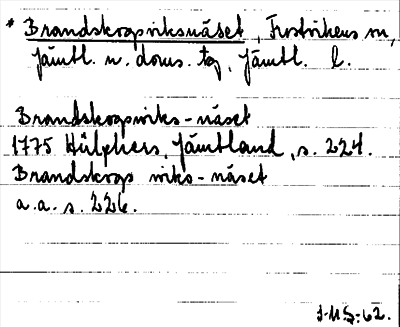 * Brandskogsviksnäset, Frostvikens sn,
Jämtl. n. doms. tg, Jämtl. l.
Brandskogswiks-näset
1775 Hülphers, Jämtland, s. 224.
Brandskogs wiks-näset
a.a. s. 226.